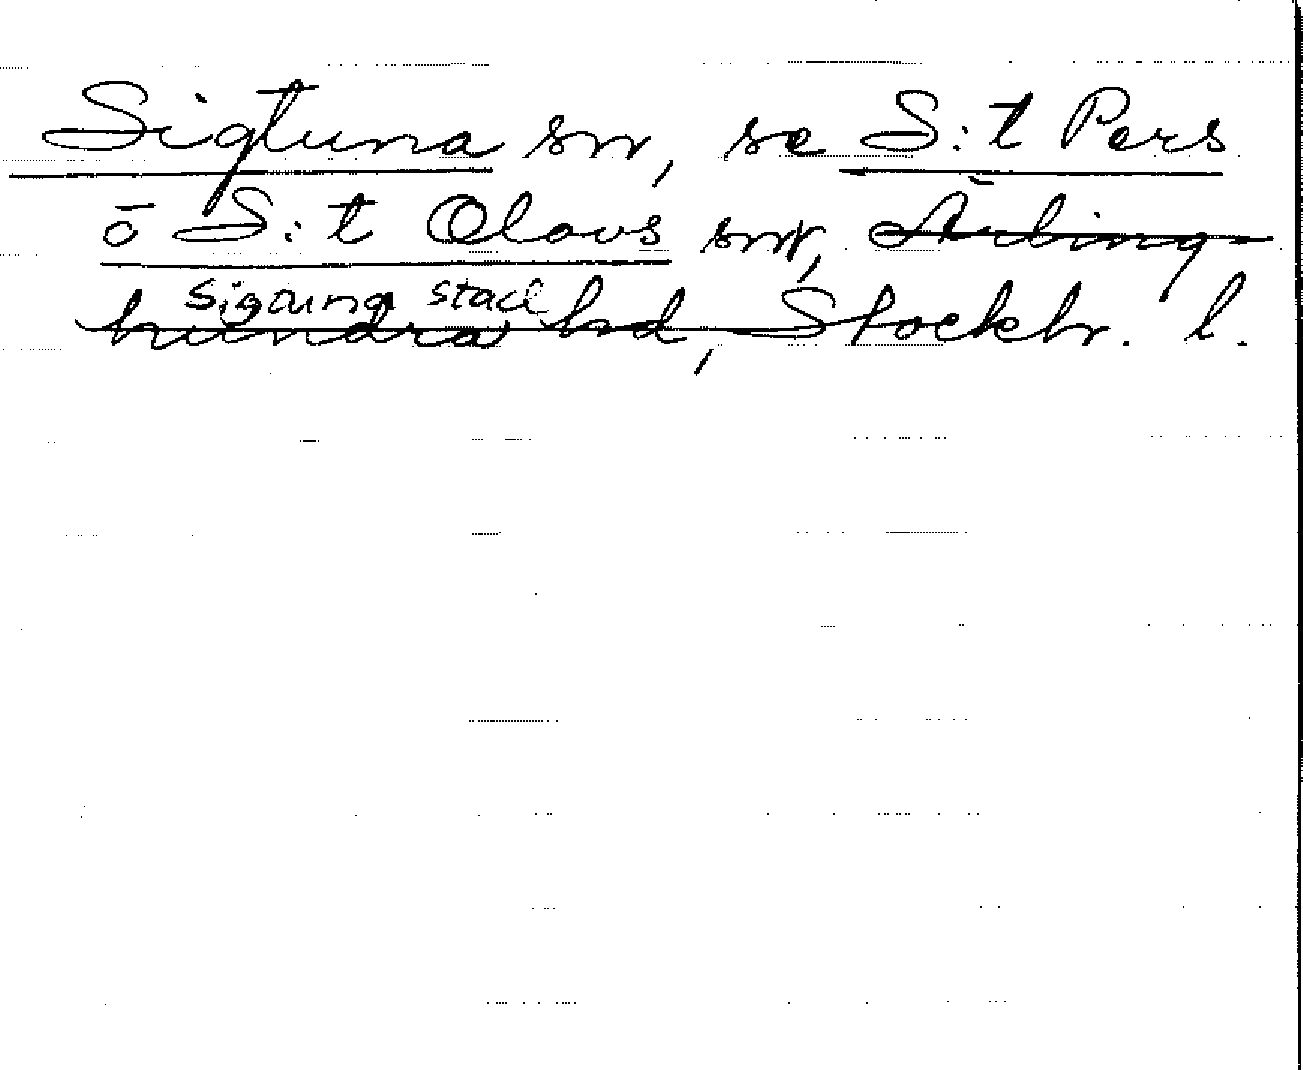 Sigtuna sn, se S:t Pers
ō S:t Olovs snr, Ärling-
Sigtuna stad
hundra hd, Stockh. l.